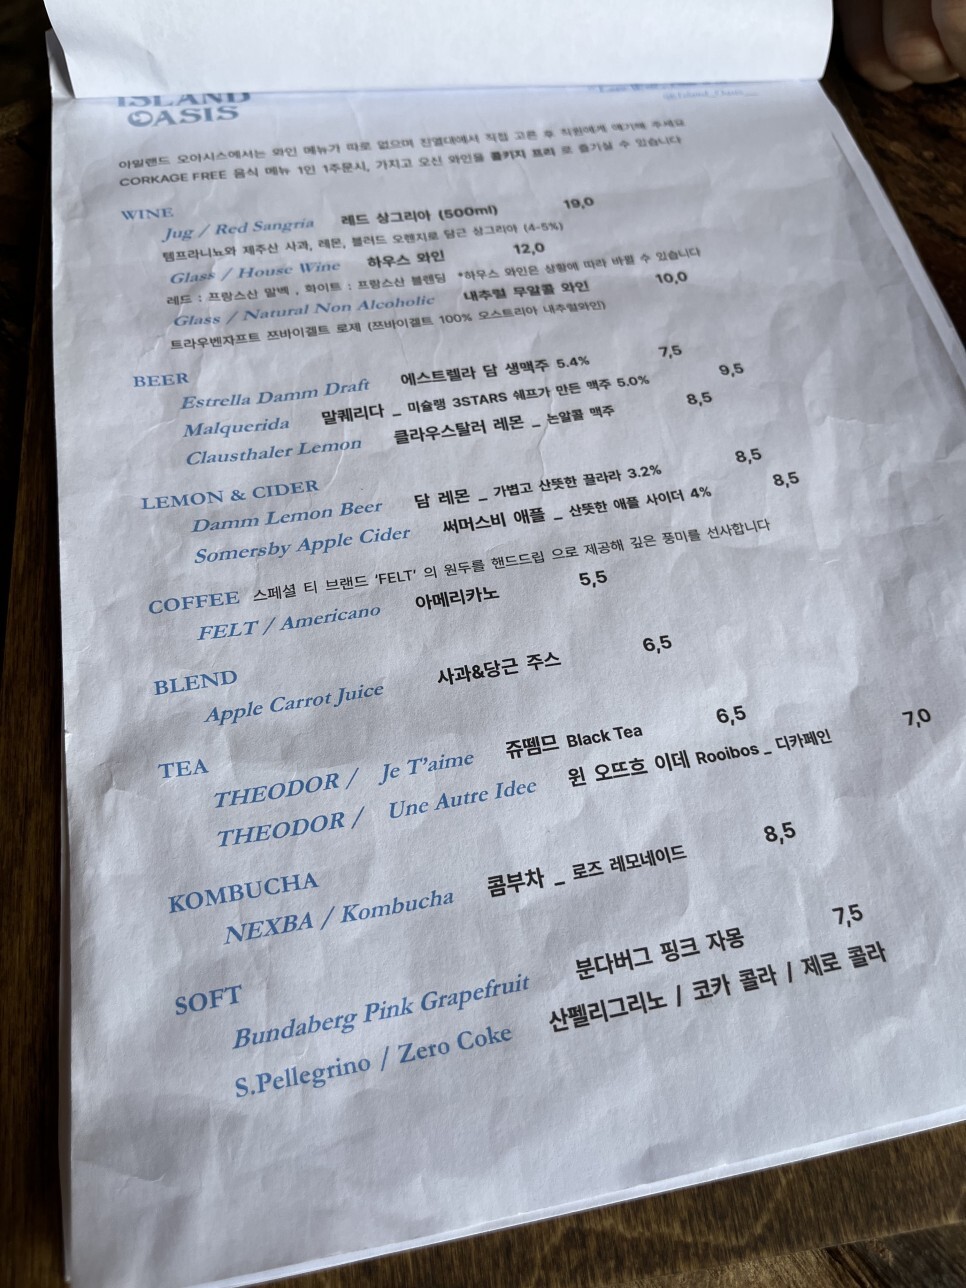 ISLAND
OASIS
아일랜드 오아시스에서는 와인 메뉴가 따로 없으며 진열대에서 직접 고른 후 직원에게 얘기해 주세요
CORKAGE FREE 음식 메뉴 1인 1주문시, 가지고 오신 와인을 콜키지 프리 로 즐기실 수 있습니다
WINE
Jug / Red Sangria 레드 상그리아 (500ml) 19,0
템프라니뇨와 제주산 사과, 레몬, 블러드 오렌지로 담근 상그리아 (4-5%)
Glass / House Wine 하우스 와인 12,0
레드 : 프랑스산 말벡 , 화이트 : 프랑스산 블렌딩 *하우스 와인은 상황에 따라 바뀔 수 있습니다
Glass / Natural Non Alcoholic 내추럴 무알콜 와인 10,0
트라우벤자프트 쯔바이겔트 로제 (쯔바이겔트 100% 오스트리아 내추럴와인)
BEER
Estrella Damm Draft 에스트렐라 담 생맥주 5.4% 7,5
Malquerida 말퀘리다 _ 미슐랭 3STARS 쉐프가 만든 맥주 5.0% 9,5
Clausthaler Lemon 클라우스탈러 레몬 _ 논알콜 맥주 8,5
LEMON & CIDER
Damm Lemon Beer 담 레몬 _ 가볍고 산뜻한 끌라라 3.2% 8,5
Somersby Apple Cider 써머스비 애플 _ 산뜻한 애플 사이더 4% 8,5
COFFEE 스페셜 티 브랜드 'FELT' 의 원두를 핸드드립 으로 제공해 깊은 풍미를 선사합니다
FELT / Americano 아메리카노 5,5
BLEND
Apple Carrot Juice 사과&당근 주스 6,5
TEA
THEODOR / Je T'aime 쥬뗌므 Black Tea 6,5
THEODOR / Une Autre Idee 윈 오뜨흐 이데 Rooibos _ 디카페인 7,0
KOMBUCHA
NEXBA / Kombucha 콤부차 _ 로즈 레모네이드 8,5
SOFT
Bundaberg Pink Grapefruit 분다버그 핑크 자몽 7,5
S.Pellegrino / Zero Coke 산펠리그리노 / 코카 콜라 / 제로 콜라